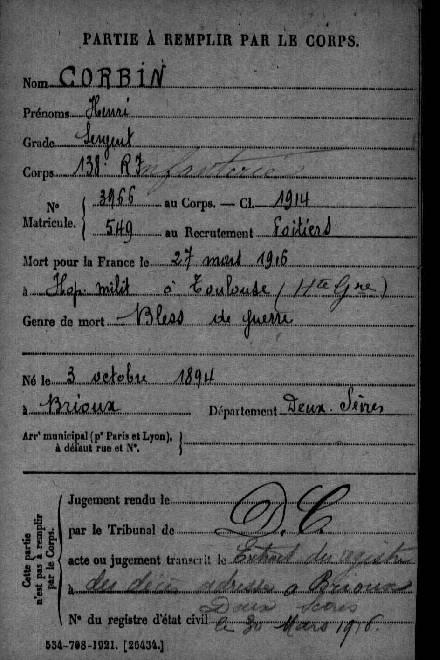 PARTIE À REMPLIR PAR LE CORPS.
Nom CORBIN
Prénoms Henri
Grade Sergent
Corps 138 RI Infanterie
N° Matricule. { 3966 au Corps. — Cl. 1914
549 au Recrutement Poitiers
Mort pour la France le 27 mars 1916
à Hop. milit à Toulouse (Hte Gne)
Genre de mort Bless de guerre
Né le 3 octobre 1894
à Brioux Département Deux-Sèvres
Arrt municipal (pr Paris et Lyon), à défaut rue et N°. }
Cette partie n'est pas à remplir par le Corps.
Jugement rendu le
par le Tribunal de D.C.
acte ou jugement transcrit le Extrait du registre
à des décès adressé à Brioux
Deux Sèvres
N° du registre d'état civil le 30 Mars 1916.
534-708-1921. [26434.]